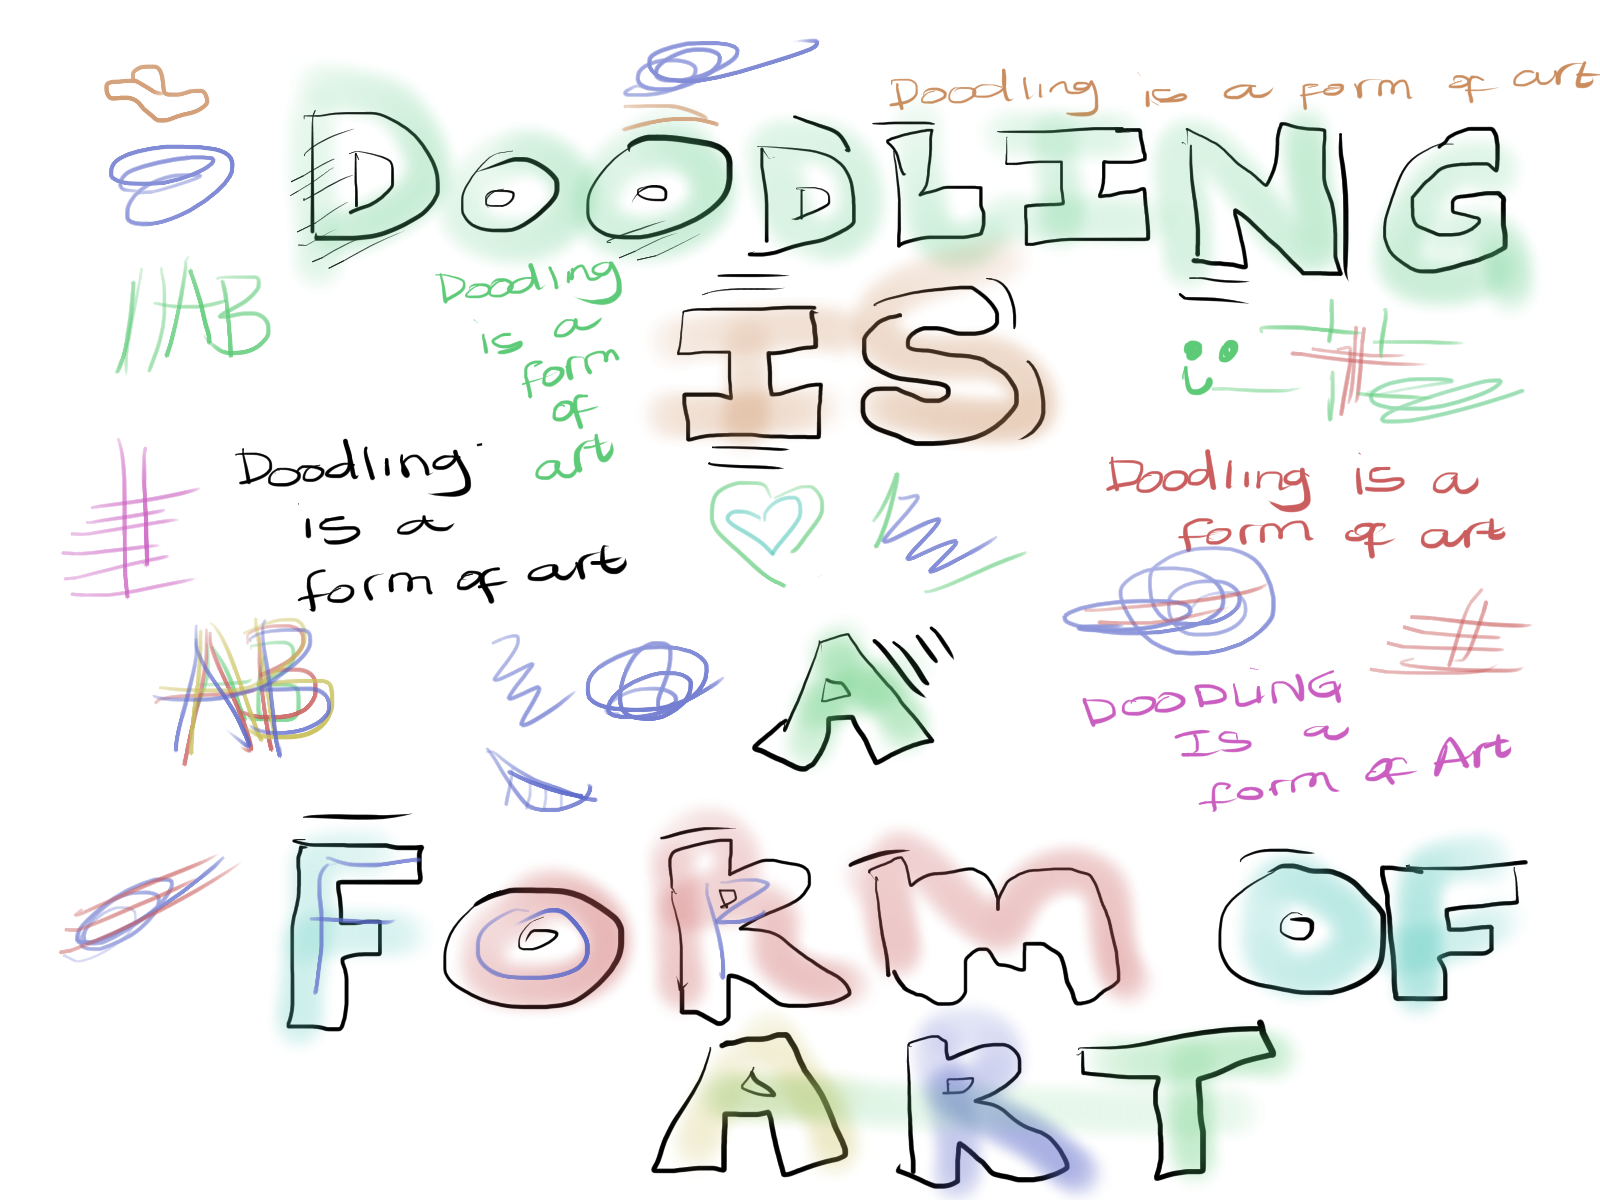 Doodling is a form of art
DOODLING
AB
Doodling
is a
form
of
art
IS
Doodling
is a
form of art
Doodling is a
form of art
AB
A
DOODLING
Is a
form of Art
FORM OF
ART